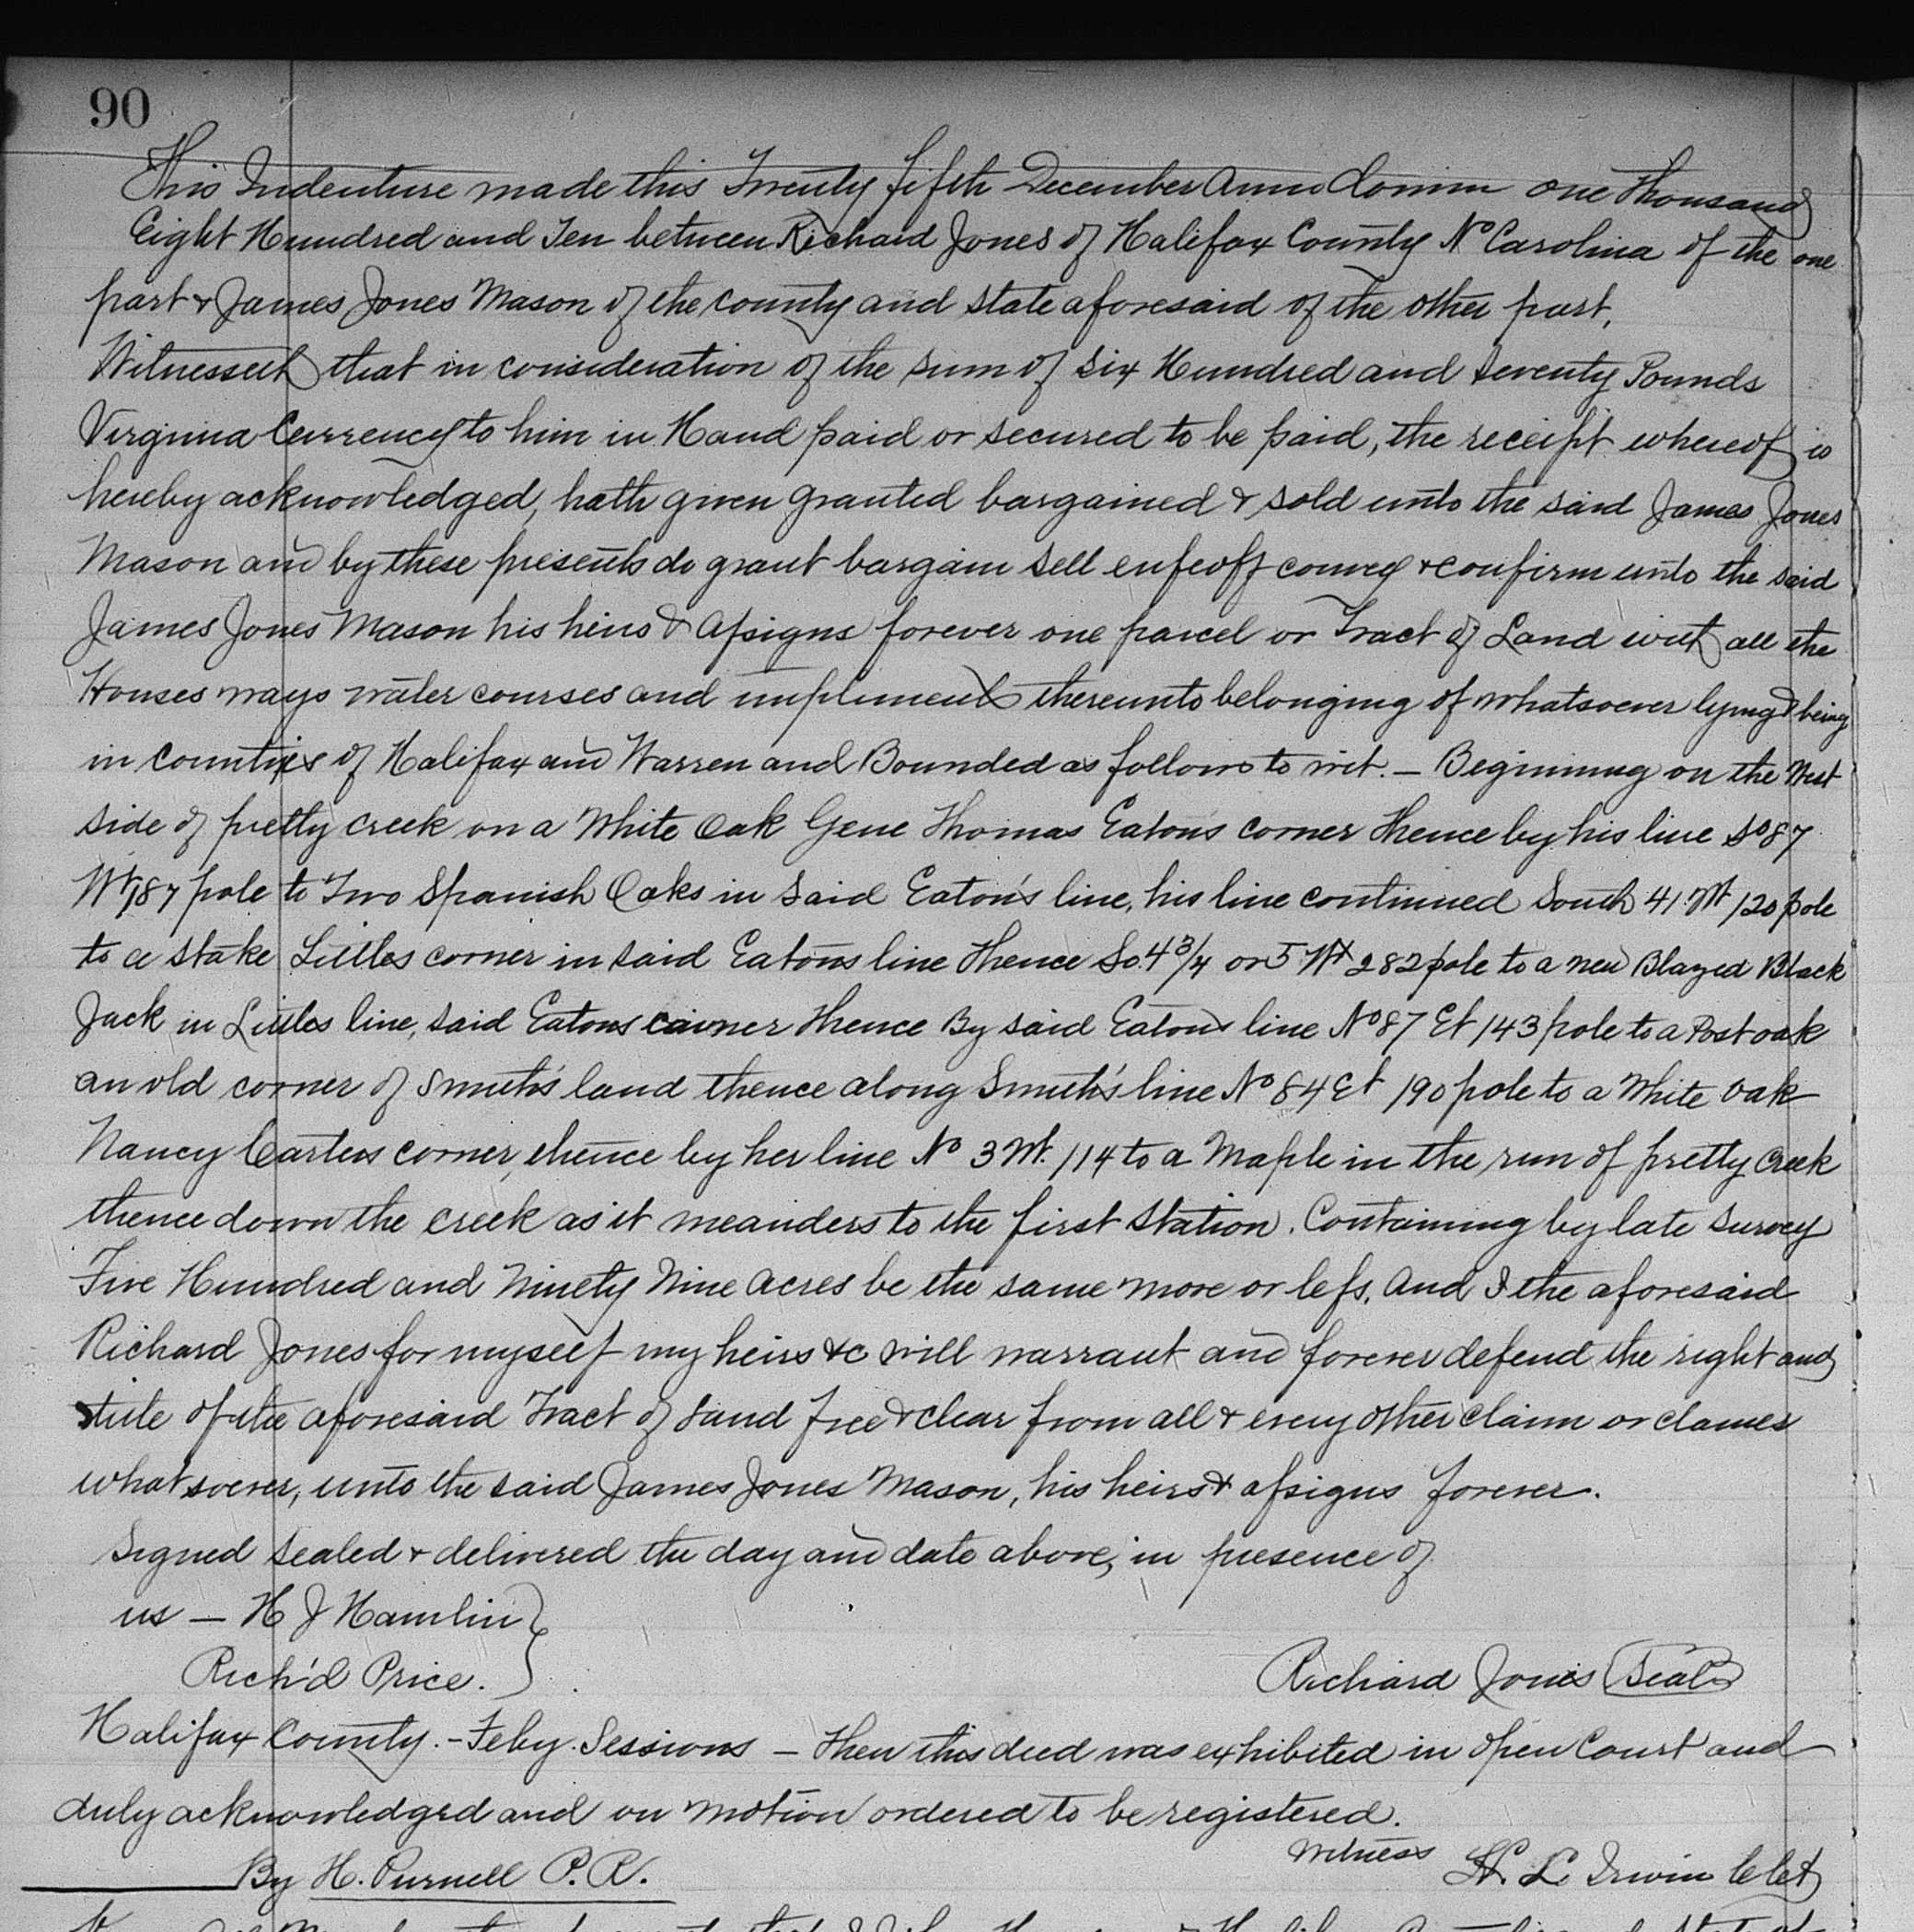 90
This Indenture made this Twenty fifth December Anno Domini one Thousand
Eight Hundred and Ten between Richard Jones of Halifax County No Carolina of the one
part & James Jones Mason of the county and state aforesaid of the other part,
Witnesseth that in consideration of the sum of six Hundred and seventy Pounds
Virginia Currency to him in Hand paid or secured to be paid, the receipt whereof is
hereby acknowledged, hath given granted bargained & sold unto the said James Jones
Mason and by these presents do grant bargain sell enfeoff convey & confirm unto the said
James Jones Mason his heirs & Assigns forever one parcel or Tract of Land with all the
Houses ways water courses and impliments thereunto belonging of whatsoever lying & being
in counties of Halifax and Warren and Bounded as follows to wit. — Beginning on the West
side of pretty creek on a White Oak Gene Thomas Eatons corner Thence by his line So 87
Wt 187 pole to Two Spanish Oaks in said Eaton's line, his line continued South 41 Wt 120 pole
to a stake Littles corner in said Eatons line Thence So. 4 3/4 or 5 Wt 282 pole to a new Blazed Black
Jack in Littles line, said Eatons corner Thence By said Eatons line No 87 Et 143 pole to a Post oak
an old corner of Smith's land thence along Smith's line No 84 Et 190 pole to a White oak
Nancy Carters corner, thence by her line No 3 Wt. 114 to a Maple in the run of pretty creek
thence down the creek as it meanders to the first station. Containing by late survey
Five Hundred and Ninety Nine acres be the same more or less. And I the aforesaid
Richard Jones for myself my heirs &c will warrant and forever defend the right and
title of the aforesaid Tract of Land free & clear from all & every other claim or clames
whatsoever, unto the said James Jones Mason, his heirs & assigns forever.
Signed sealed & delivered the day and date above, in presence of
us — H J Hamlin
Rich'd Price.
Richard Jones Seal
Halifax County. - Feby. Sessions — Then this deed was exhibited in open Court and
duly acknowledged and on motion ordered to be registered.
Witness
By H. Purnell P. R.
L Irwin Clet